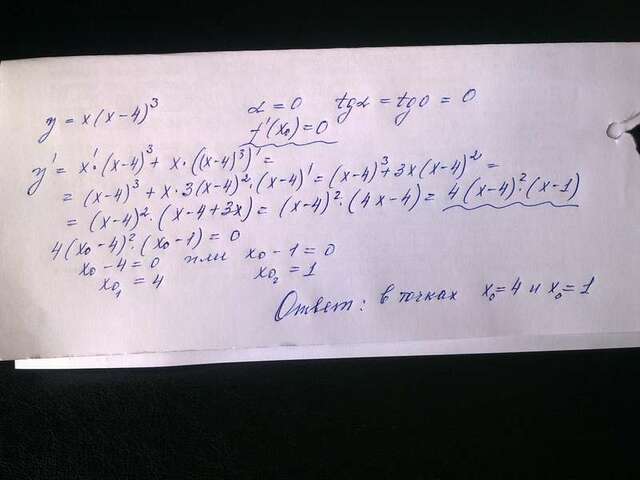 y = x(x-4)³ α = 0 tgα = tg0 = 0
f'(x₀) = 0
y' = x'·(x-4)³ + x·((x-4)³)' =
= (x-4)³ + x·3(x-4)²·(x-4)' = (x-4)³ + 3x(x-4)² =
= (x-4)²·(x-4+3x) = (x-4)²·(4x-4) = 4(x-4)²·(x-1)
4(x₀-4)²·(x₀-1) = 0
x₀-4=0 или x₀-1=0
x₀₁ = 4 x₀₂ = 1
Ответ: в точках x₀=4 и x₀=1